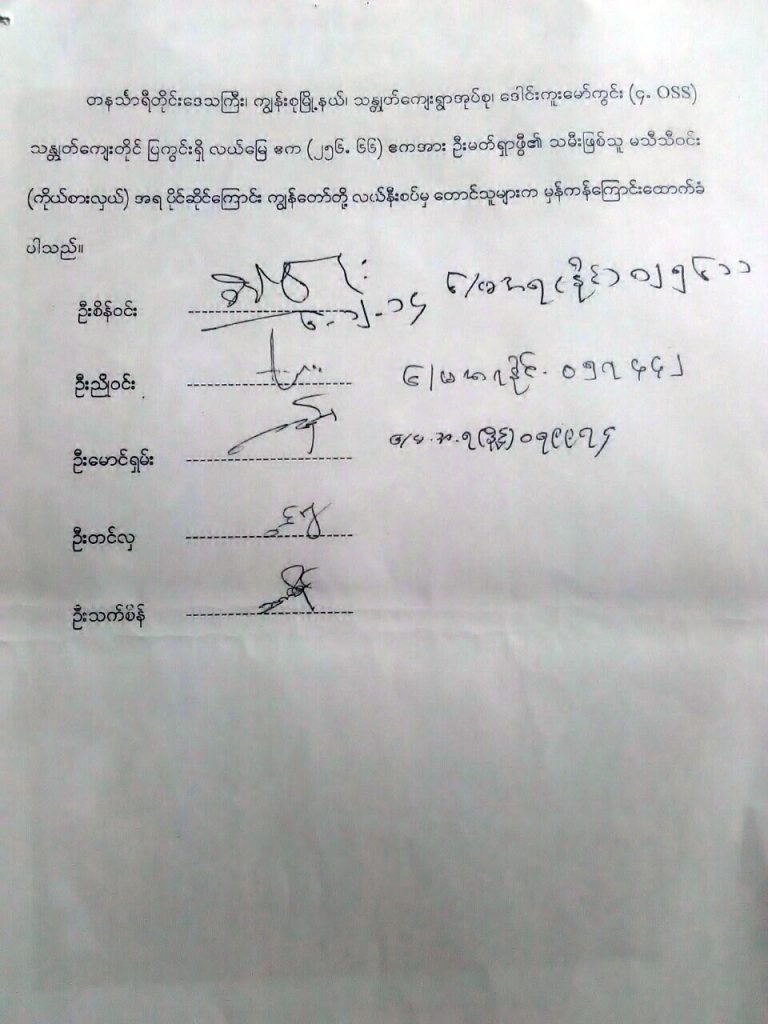 တနင်္သာရီတိုင်းဒေသကြီး၊ ကျွန်းစုမြို့နယ်၊ သန္တုတ်ကျေးရွာအုပ်စု၊ ဒေါင်းကူးမော်ကွင်း (၄. OSS)
သန္တုတ်ကျေးတိုင် ပြကွင်းရှိ လယ်မြေ ဧက (၂၅၆. ၆၆) ဧကအား ဦးမတ်ရှာဖွီ၏ သမီးဖြစ်သူ မသီသီဝင်း
(ကိုယ်စားလှယ်) အရ ပိုင်ဆိုင်ကြောင်း ကျွန်တော်တို့ လယ်နီးစပ်မှ တောင်သူများက မှန်ကန်ကြောင်းထောက်ခံ
ပါသည်။
ဦးစိန်ဝင်း ၆/မအရ (နိုင်) ၀၂၅၆၁၁
၆-၂-၁၄
ဦးညိုဝင်း ၆/မအရ နိုင်. ၀၅၇၄၄၂
ဦးမောင်ရှမ်း ၆/မ.အ.ရ(နိုင်)၀၅၉၉၇၄
ဦးတင်လှ
ဦးသက်စိန်